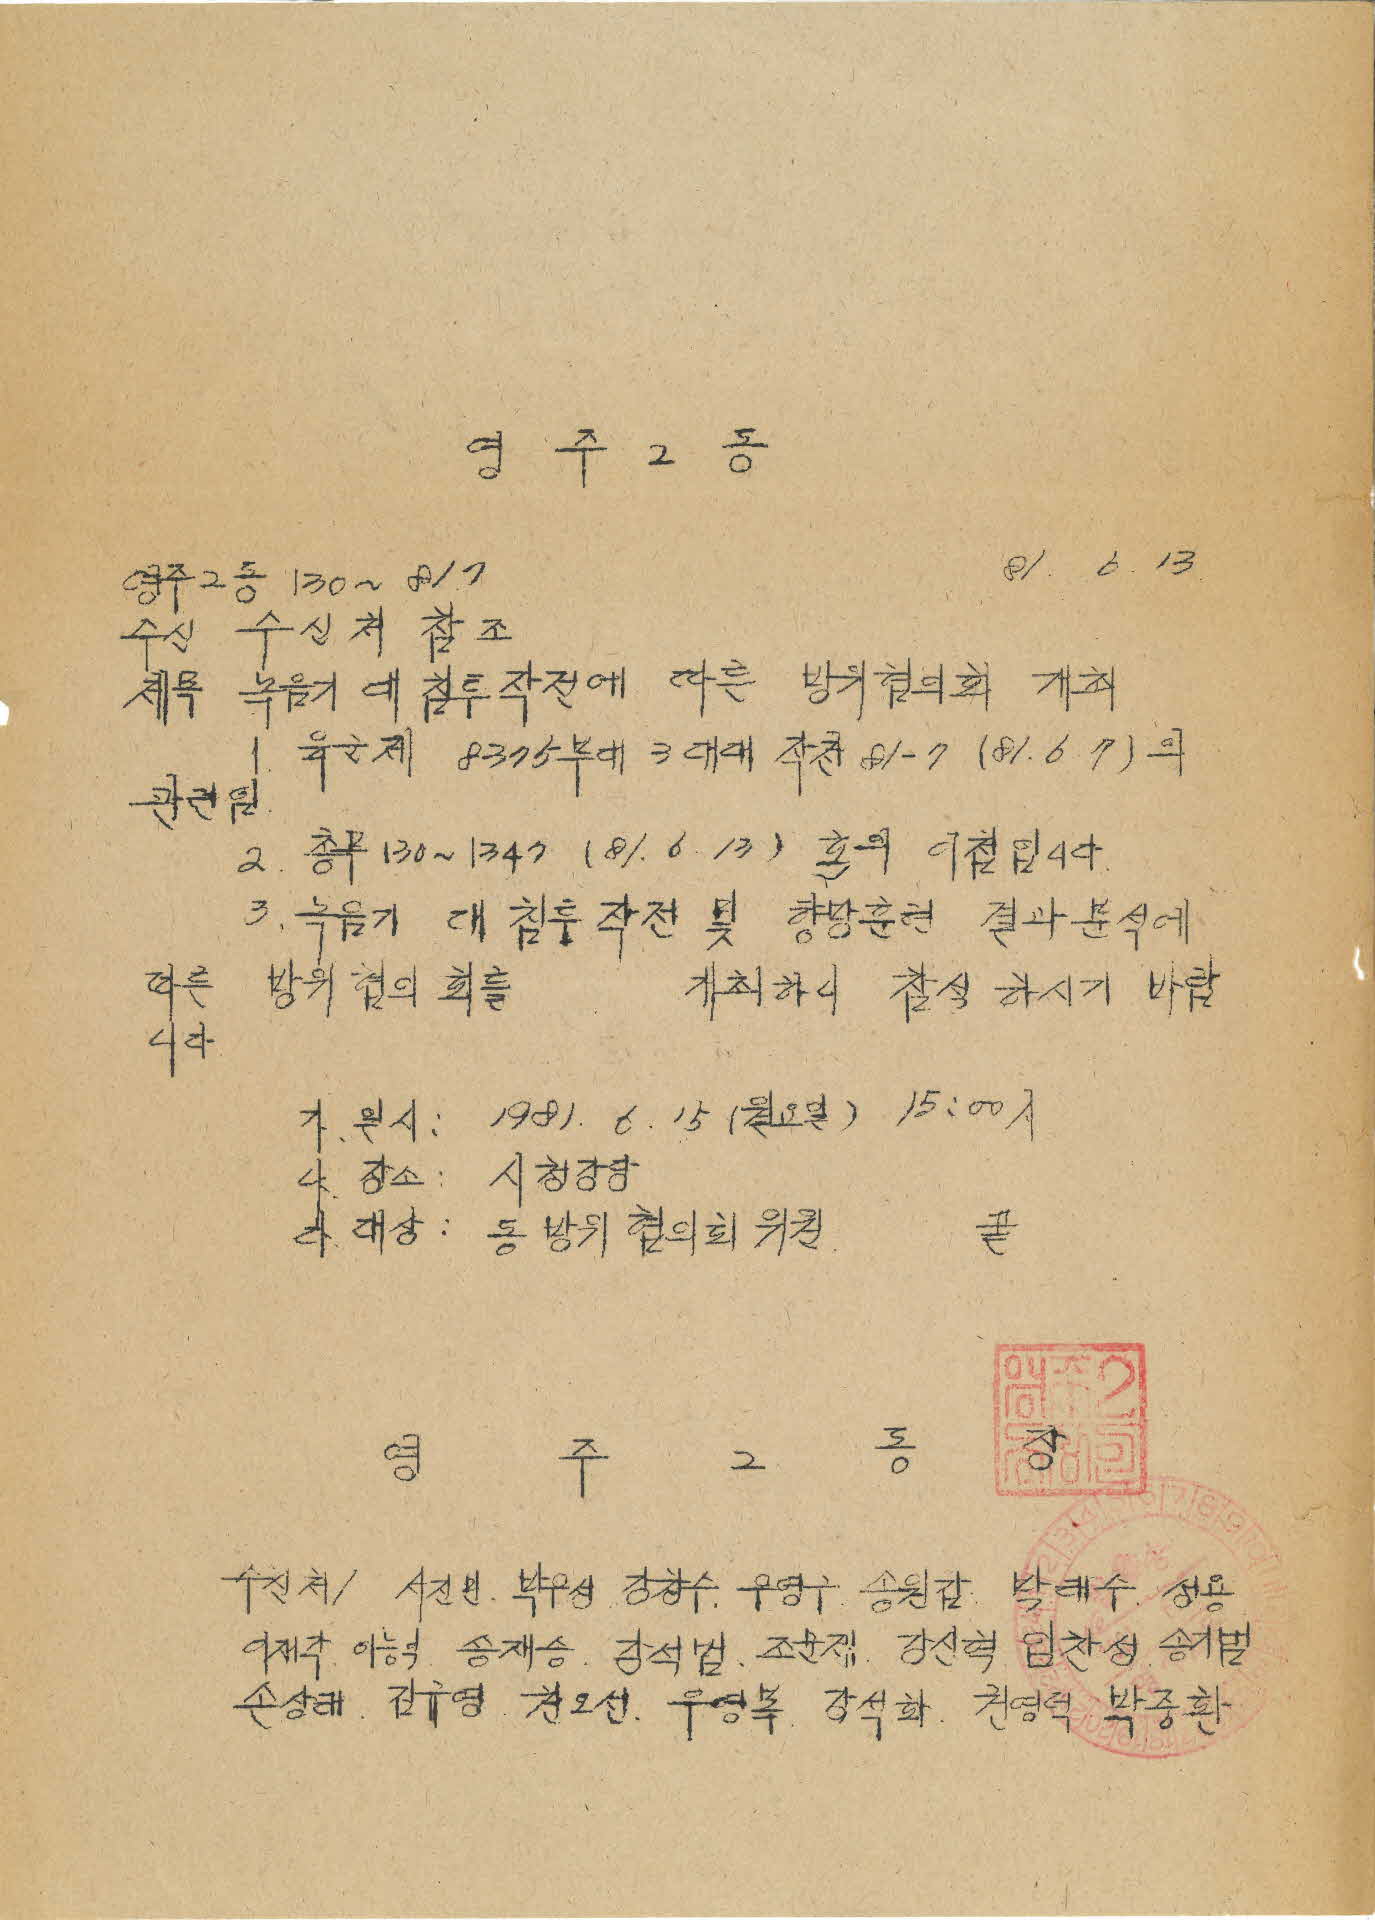 영 주 2 동
영주2동 130~817 81. 6. 13.
수신 수신처 참조
제목 녹음기 대 침투작전에 따른 방위협의회 개최
1. 육군제 8375부대 3대대 작전 81-7 (81. 6. 7)의
관련임.
2. 총무 130~1347 (81. 6. 13) 호의 이첩입니다.
3. 녹음기 대 침투작전 및 향방훈련 결과분석에
따른 방위협의회를 개최하니 참석하시기 바랍
니다
가. 일시: 1981. 6. 15 (월요일) 15:00시
나. 장소: 시청강당
다. 대상: 동 방위협의회 위원. 끝
영 주 2 동 장
수신처/ 박우성. 강창수. 우영구. 송원갑. 박태수. 성용
이재각. 이능덕 송재승. 강석범. 조윤제. 강신혁 임찬성 송기범
손상태. 김규영. 권오선. 우영목. 강석화. 권영덕 박중환